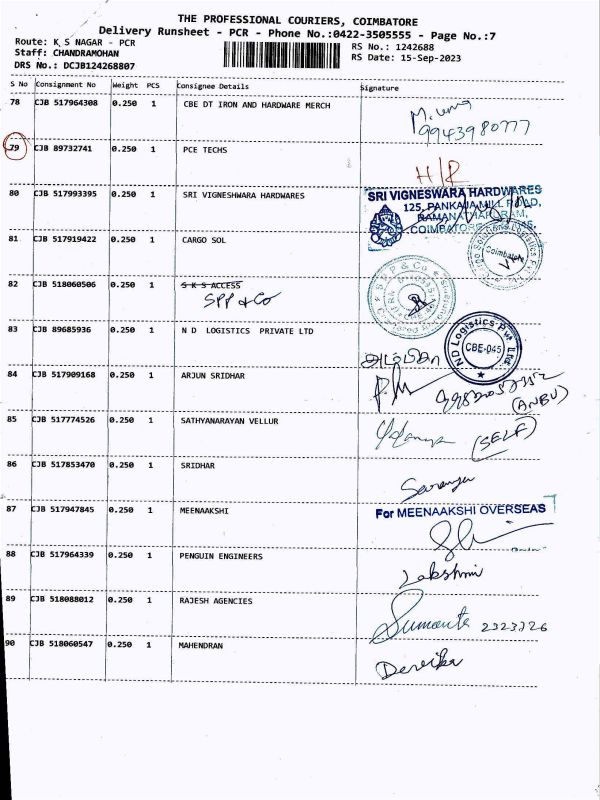 THE PROFESSIONAL COURIERS, COIMBATORE
Delivery Runsheet - PCR - Phone No.:0422-3505555 - Page No.:7
Route: K S NAGAR - PCR
Staff: CHANDRAMOHAN
DRS No.: DCJB124268807
RS No.: 1242688
RS Date: 15-Sep-2023
S No Consignment No Weight PCS Consignee Details Signature
78 CJB 517964308 0.250 1 CBE DT IRON AND HARDWARE MERCH
9943980777
79 CJB 89732741 0.250 1 PCE TECHS
H/R
80 CJB 517993395 0.250 1 SRI VIGNESHWARA HARDWARES
SRI VIGNESWARA HARDWARES
125, PANKAJA MILL ROAD,
RAMANATHAPURAM,
81 CJB 517919422 0.250 1 CARGO SOL
Coimbatore
82 CJB 518060506 0.250 1 S K S ACCESS
SPP & Co
SPP & Co
83 CJB 89685936 0.250 1 N D LOGISTICS PRIVATE LTD
ND Logistics Pvt. Ltd.
CBE-045
84 CJB 517909168 0.250 1 ARJUN SRIDHAR
(ANBU)
85 CJB 517774526 0.250 1 SATHYANARAYAN VELLUR
(SELF)
86 CJB 517853470 0.250 1 SRIDHAR
Saranya
87 CJB 517947845 0.250 1 MEENAAKSHI
For MEENAAKSHI OVERSEAS
88 CJB 517964339 0.250 1 PENGUIN ENGINEERS
Lakshmi
89 CJB 518088012 0.250 1 RAJESH AGENCIES
90 CJB 518060547 0.250 1 MAHENDRAN